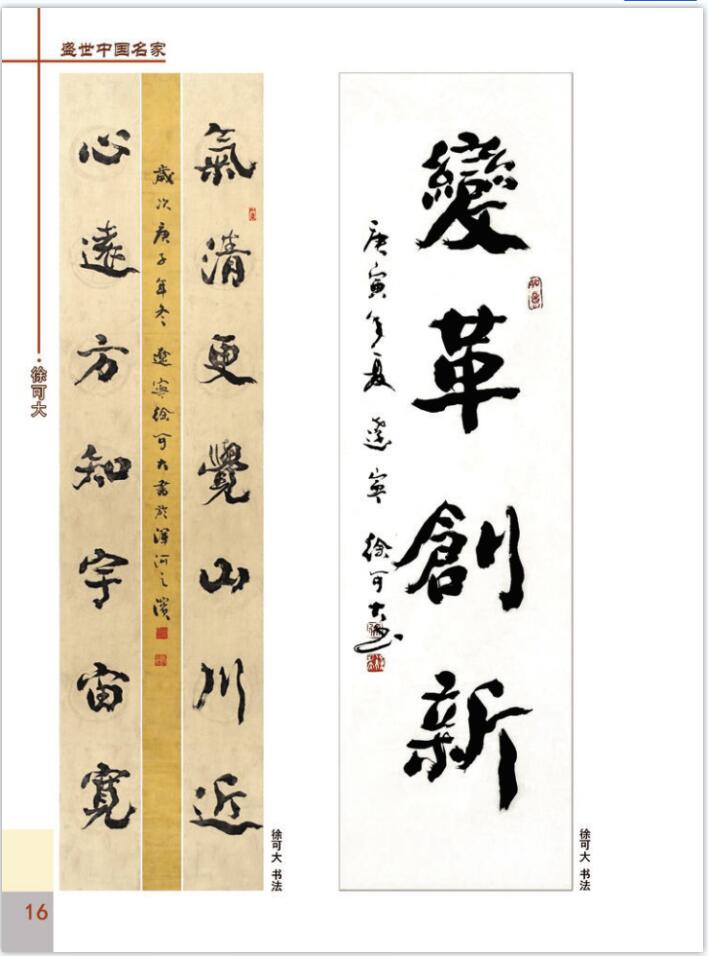 盛世中国名家
·徐可大
氣清更覺山川近
歲次庚子年冬 遼寧徐可大書於渾河之濱
心遠方知宇宙寬
徐可大 书法
變革創新
庚寅年夏 遼寧 徐可大書
徐可大 书法
16